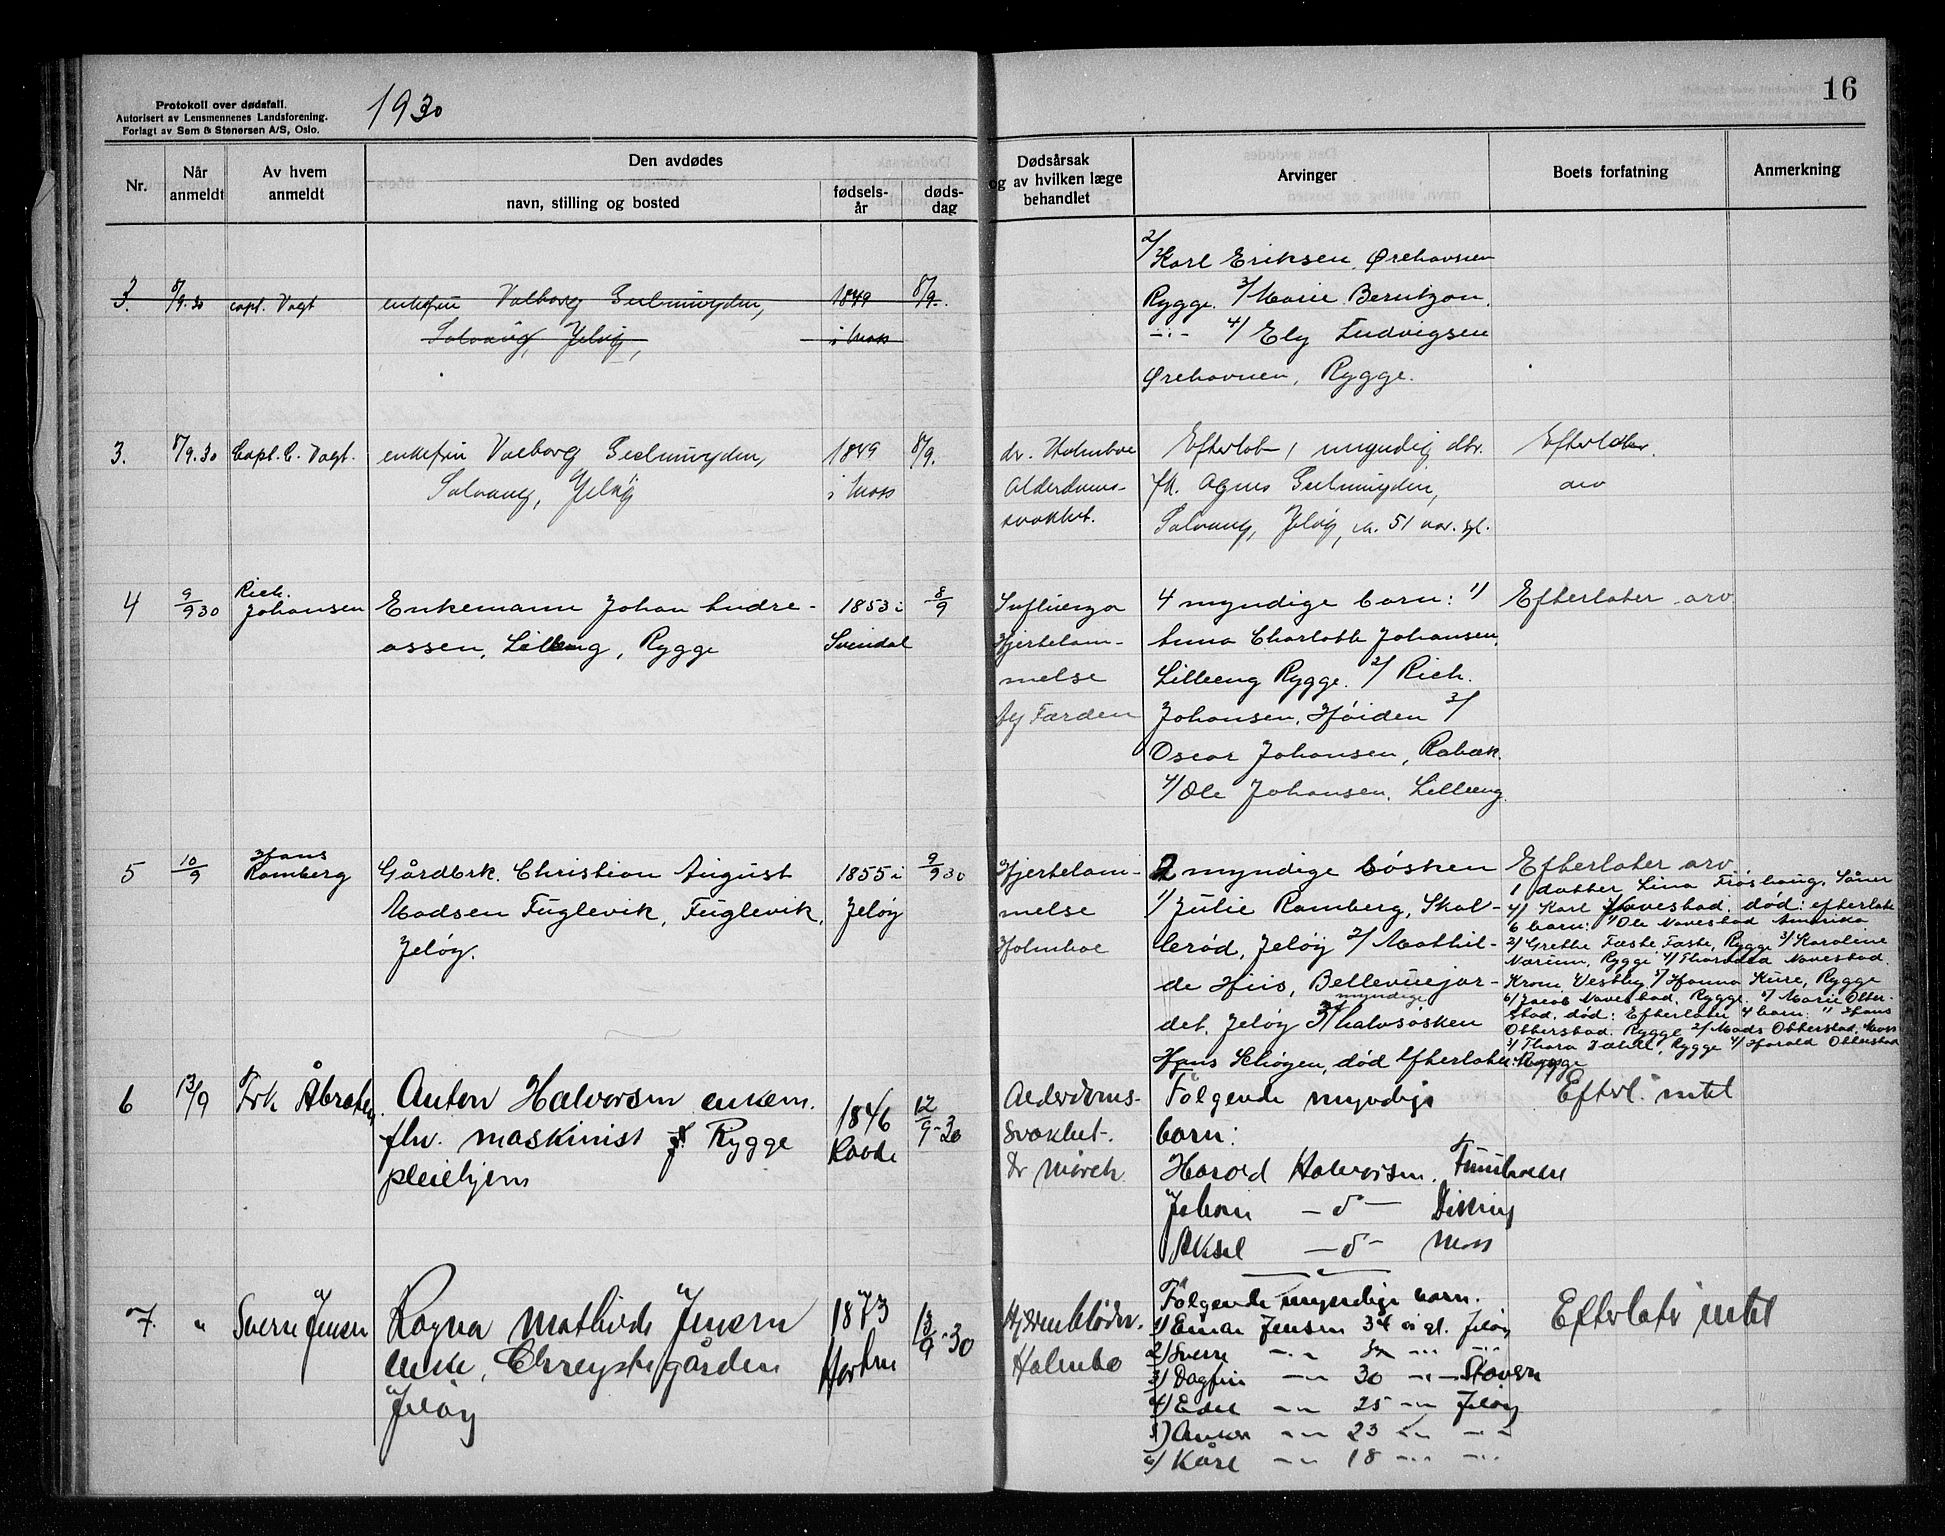 Protokoll over dødsfall.
Autorisert av Lensmennenes Landsforening.
Forlagt av Sem & Stenersen A/S, Oslo.
1930
16
Nr.
Når anmeldt
Av hvem anmeldt
Den avdødes
navn, stilling og bosted
fødsels-år
døds-dag
Dødsårsak og av hvilken læge behandlet
Arvinger
Boets forfatning
Anmerkning
2/ Karl Eriksen, Ørehavnen
Rygge. 3/ Marie Berntzon.
-"- 4/ Ely Ludvigsen
Ørehavnen, Rygge.
3. 8/9.30 capt. Vogt enkefru Valborg Geelmuyden, 1849 8/9.
Solvang, Jeløy, i Moss
3. 8/9.30 Capt. C. Vogt. enkefru Valborg Geelmuyden, 1849 8/9.
Solvang, Jeløy i Moss
dr. Holmboe
Alderdoms-
svakhet.
Efterlot 1 myndig dtr.
frk. Agnes Geelmuyden,
Solvang, Jeløy, ca. 51 aar. gl.
Efterlater
arv
4 9/9 30 Rich. Johansen Enkemann Johan Andre- 1853 i 8/9
assen, Lilleeng, Rygge Svindal
Influenza
Hjertelam-
melse
Færden
4 myndige barn: 1/
Anna Charlotte Johansen,
Lilleeng Rygge. 2/ Rich.
Johansen, Høiden 3/
Oscar Johansen, Rabæk.
4/ Ole Johansen, Lilleeng.
Efterlater arv
5 10/9 Hans Ramberg Gårdbrk. Christian August 1855 i 9/9 30
Madsen Fuglevik, Fuglevik, Jeløy
Jeløy.
Hjertelam-
melse
Holmboe
2 myndige søsken
1/ Julie Ramberg, Skal-
lerød, Jeløy 2/ Mathil-
de Hiis, Bellevuejor-
det, Jeløy 3 myndige halvsøsken
Hans Schøyen, død Efterlater:
Efterlater arv
1 datter Lina Frøshaug, Såner
4/ Karl Navestad, død: efterlate
6 barn: 1/ Ole Navestad Amerika
2/ Grethe Fæste Fæste, Rygge 3/ Karoline
Nærum, Rygge 4/ Thorvald Navestad
Kroni Vestby 5/ Hanna Kure, Rygge
6/ Jacob Navestad, Rygge. 5/ Marie Otter-
stad, død: Efterlater 4 barn: 1/ Hans
Otterstad, Rygge 2/ Mads Otterstad, Moss
3/ Thora, Rygge 4/ Harald Otterstad
Rygge
6 13/9 Frk Anton Halvorsen enkem. 1846 12/9-30
fhv. maskinist Rygge Raade
pleiehjem
Alderdoms-
svakhet.
Dr Mørch
Følgende myndige
barn:
Harald Halvorsen,
Johan -d-
Aksel -d- Moss
Efterl. intet
7. " Sverre Jensen Ragna Mathilde Jensen 1873 13/9-30
enke, Horten
Jeløy
Holmbo
Følgende myndige barn.
1) Einar Jensen 34 år gl. Jeløy
2) Sverre -"- -"- -"-
3) Dagfin -"- 30 -"- Stavern
4) Edel -"- 25 -"- Jeløy
5) -"- 23 -"- -"-
6) Kåre -"- 18 -"- -"-
Efterlater intet